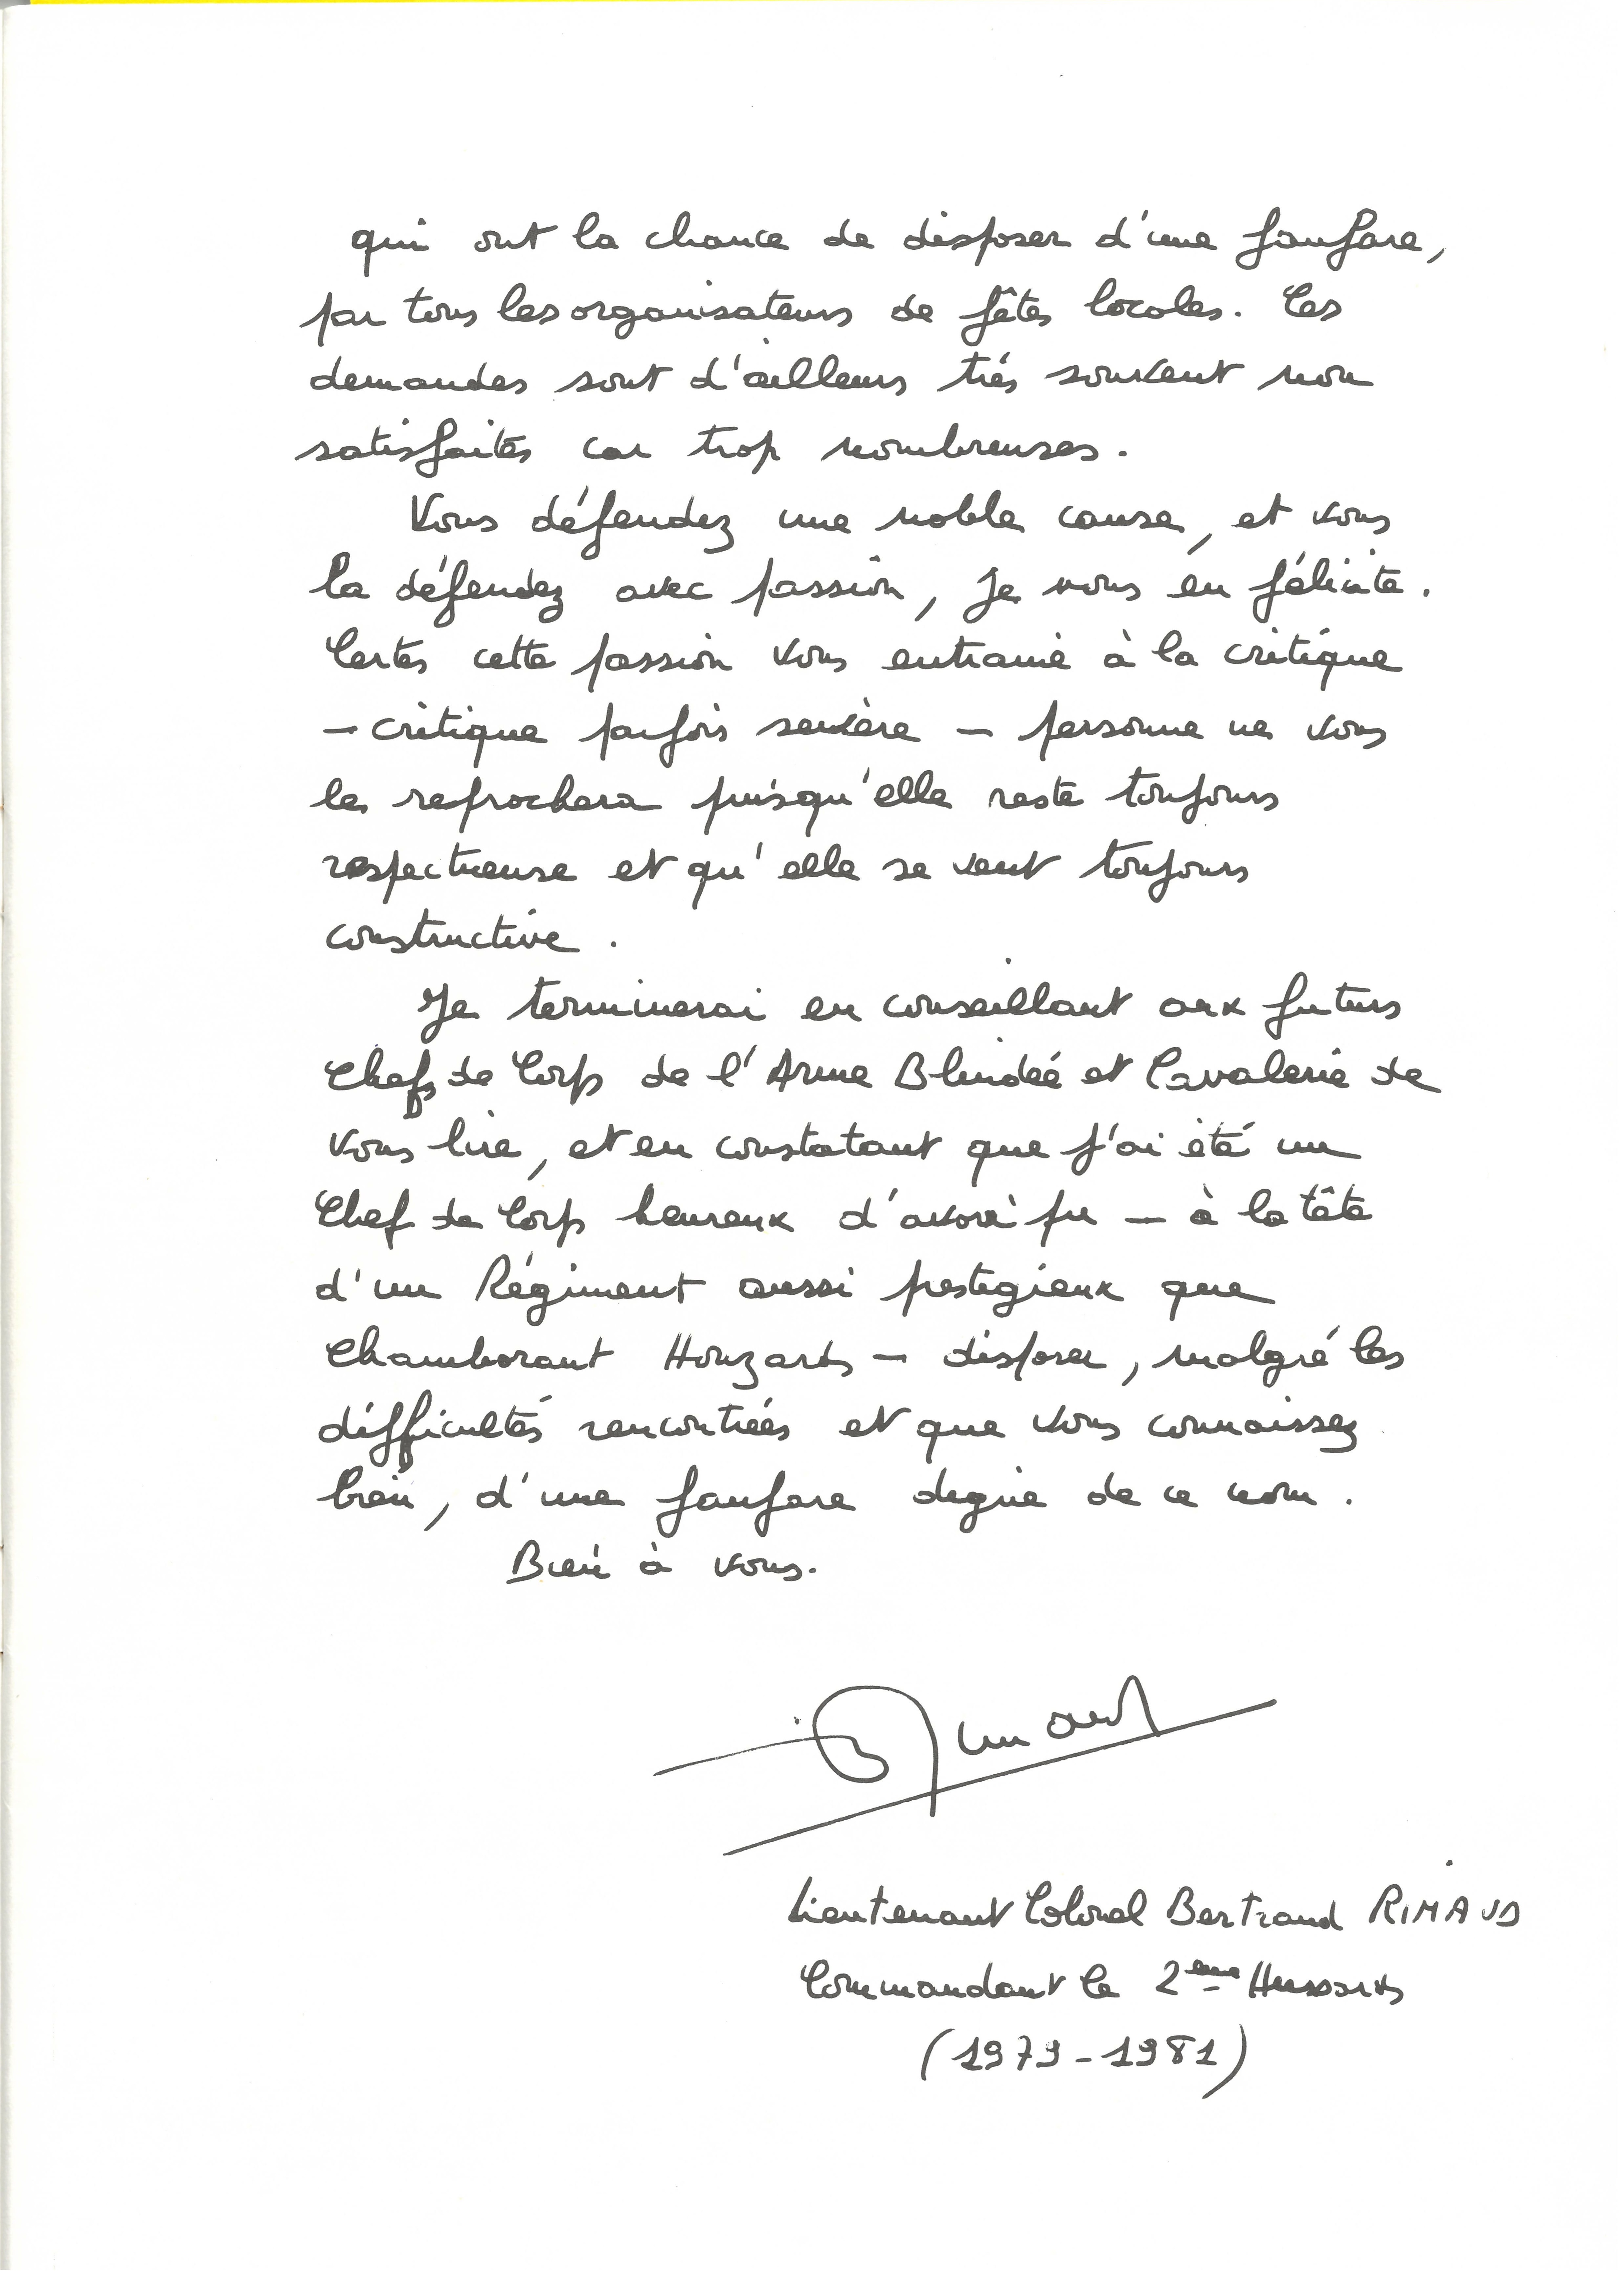 qui ont la chance de disposer d'une fanfare,
par tous les organisateurs de fêtes locales. Ces
demandes sont d'ailleurs très souvent non
satisfaites car trop nombreuses.
Vous défendez une noble cause, et vous
la défendez avec passion, je vous en félicite.
Certes cette passion vous entraine à la critique
- critique parfois sévère - personne ne vous
le reprochera puisqu'elle reste toujours
respectueuse et qu'elle se veut toujours
constructive.
Je terminerai en conseillant aux futurs
Chefs de Corps de l'Arme Blindée et Cavalerie de
vous lire, et en constatant que j'ai été un
Chef de Corps heureux d'avoir pu - à la tête
d'un Régiment aussi prestigieux que
Chamborant Houzards - disposer, malgré les
difficultés rencontrées et que vous connaissez
bien, d'une fanfare digne de ce nom.
Bien à vous.
B Rimaud
Lieutenant Colonel Bertrand RIMAUD
Commandant le 2ème Hussards
(1979-1981)